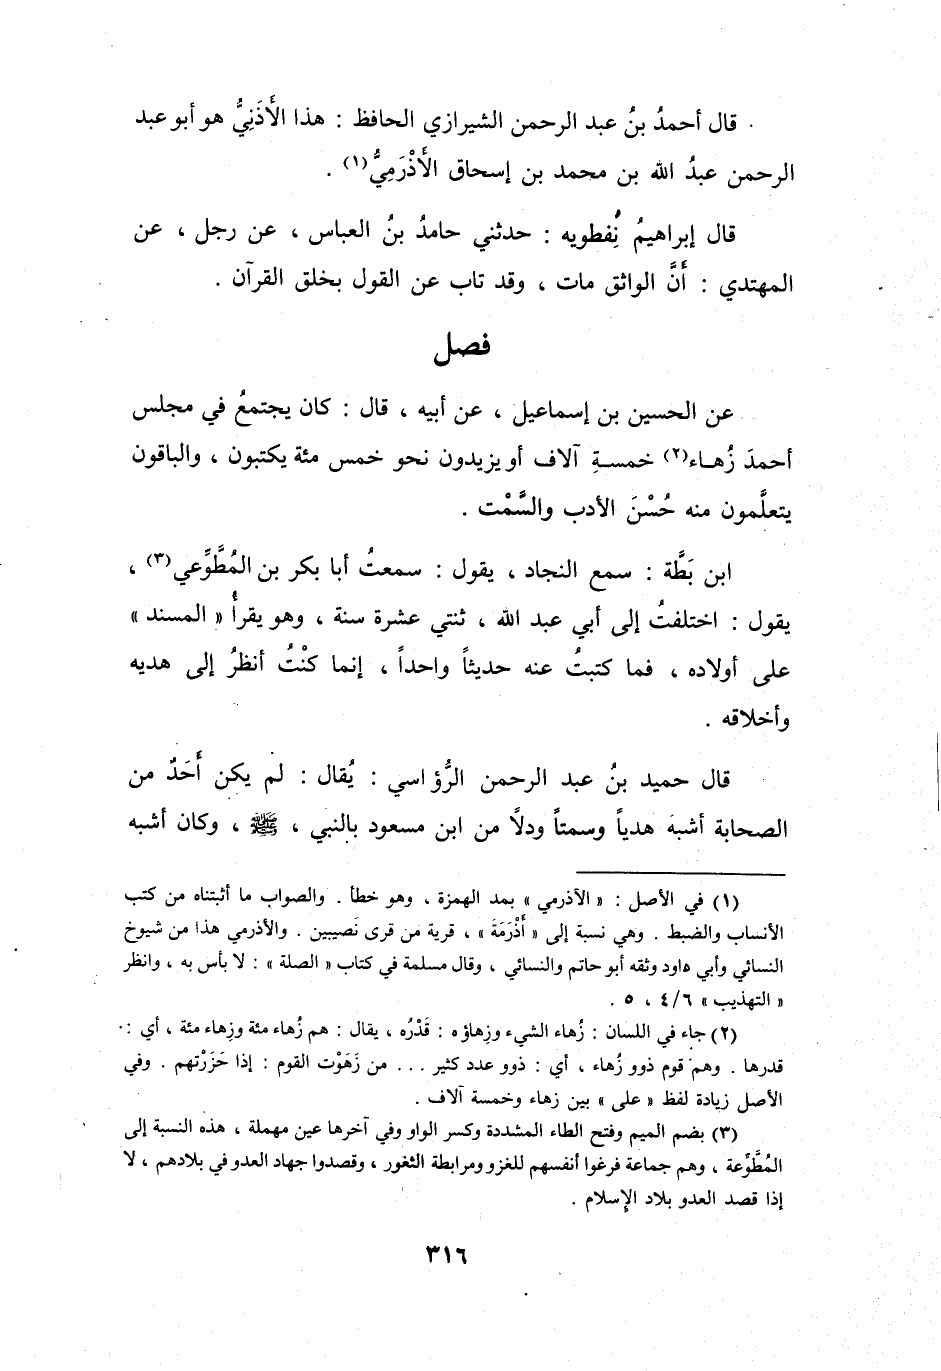 قال أحمدُ بنُ عبد الرحمن الشيرازي الحافظ : هذا الأَذَنِيُّ هو أبو عبد
الرحمن عبدُ الله بن محمد بن إسحاق الأَذْرَمِيُّ(١) .
قال إبراهيمُ نِفطويه : حدثني حامدُ بنُ العباس ، عن رجل ، عن
المهتدي : أَنَّ الواثق مات ، وقد تاب عن القول بخلق القرآن .
فصل
عن الحسين بن إسماعيل ، عن أبيه ، قال : كان يجتمعُ في مجلس
أحمدَ زُهاء(٢) خمسةِ آلاف أو يزيدون نحو خمس مئة يكتبون ، والباقون
يتعلَّمون منه حُسْنَ الأدب والسَّمْت .
ابن بَطَّة : سمع النجاد ، يقول : سمعتُ أبا بكر بن المُطَّوِّعي(٣) ،
يقول : اختلفتُ إلى أبي عبد الله ، ثنتي عشرة سنة ، وهو يقرأُ « المسند »
على أولاده ، فما كتبتُ عنه حديثاً واحداً ، إنما كنْتُ أنظرُ إلى هديه
وأخلاقه .
قال حميد بنُ عبد الرحمن الرُّؤاسي : يُقال : لم يكن أَحَدٌ من
الصحابة أشبهَ هدياً وسمتاً ودلًا من ابن مسعود بالنبي ، ﷺ ، وكان أشبه
(١) في الأصل : « الآذرمي » بمد الهمزة ، وهو خطأ . والصواب ما أثبتناه من كتب
الأنساب والضبط . وهي نسبة إلى « أَذْرَمَةَ » ، قرية من قرى نَصيبين . والأذرمي هذا من شيوخ
النسائي وأبي داود وثقه أبو حاتم والنسائي ، وقال مسلمة في كتاب « الصلة » : لا بأس به ، وانظر
« التهذيب » ٤/٦ ، ٥ .
(٢) جاء في اللسان : زُهاء الشيء وزِهاؤه : قَدْرُه ، يقال : هم زُهاء مئة وزِهاء مئة ، أي :
قدرها . وهم قوم ذوو زُهاء ، أي : ذوو عدد كثير ... من زَهَوْت القوم : إذا حَزَرْتهم . وفي
الأصل زيادة لفظ « على » بين زهاء وخمسة آلاف .
(٣) بضم الميم وفتح الطاء المشددة وكسر الواو وفي آخرها عين مهملة ، هذه النسبة إلى
المُطَّوِّعة ، وهم جماعة فرغوا أنفسهم للغزو ومرابطة الثغور ، وقصدوا جهاد العدو في بلادهم ، لا
إذا قصد العدو بلاد الإسلام .
٣١٦